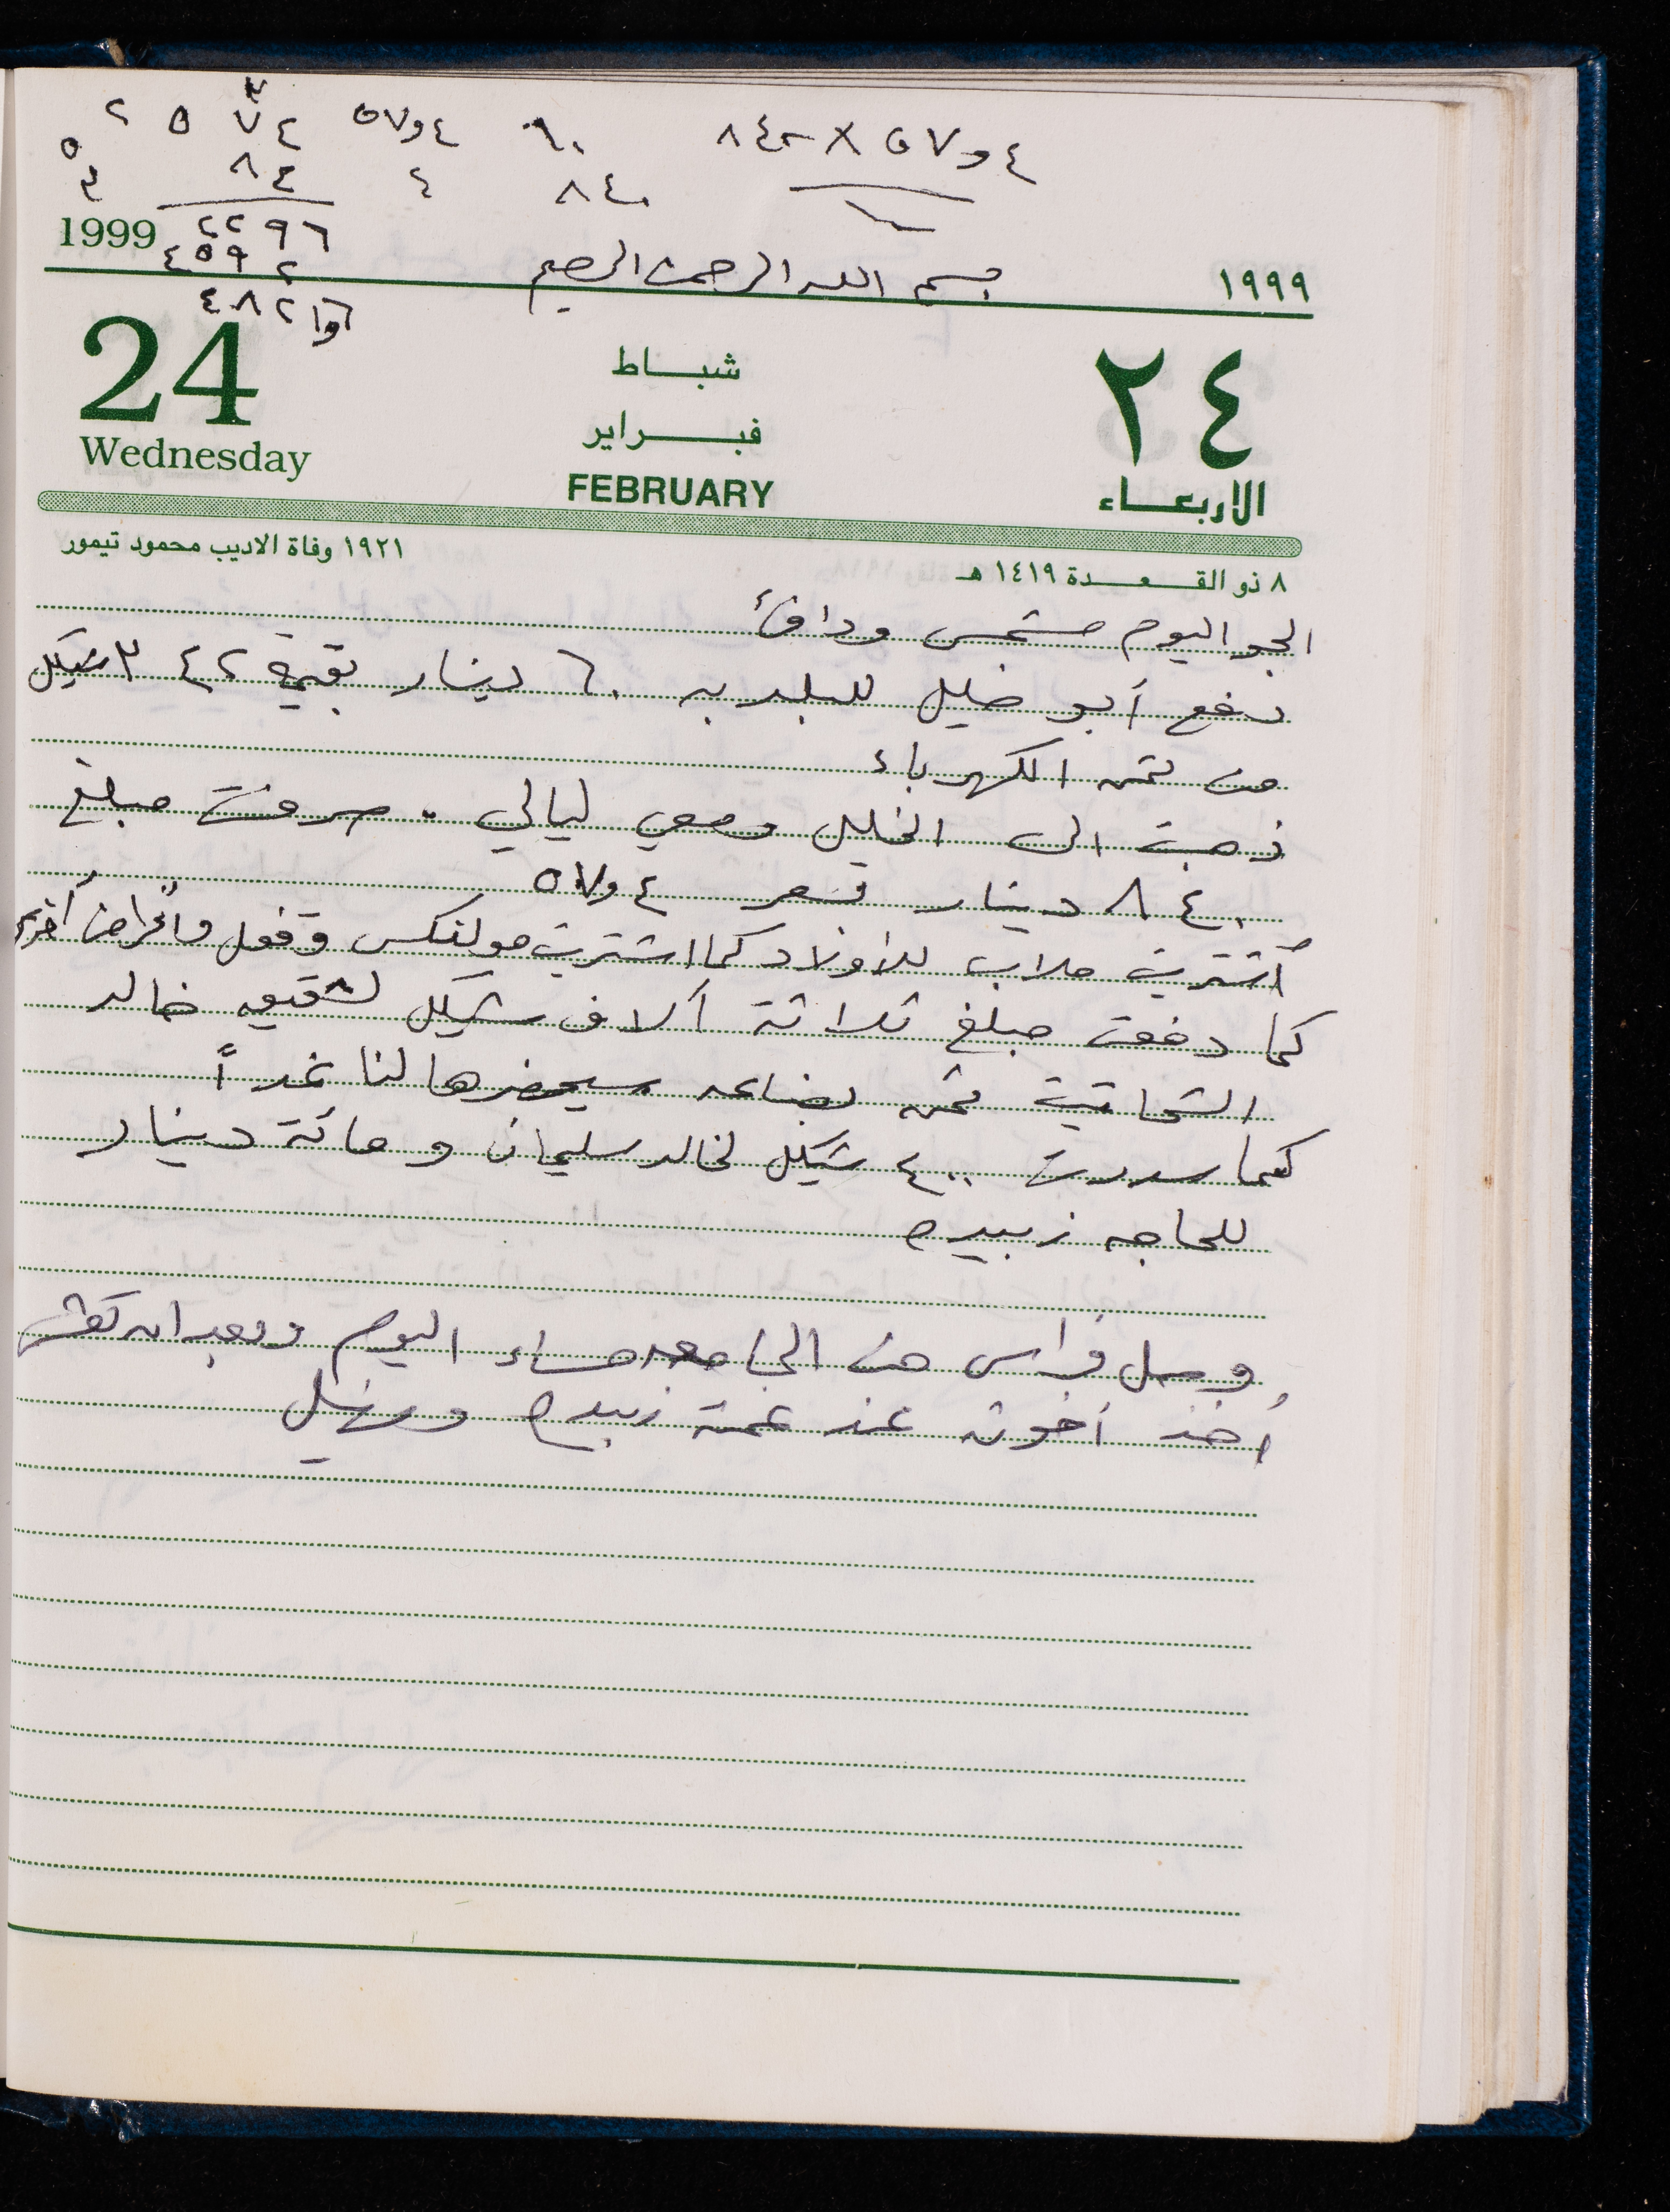 ٨٤٠ × ٥٧و٤
٦٠
٨٤٠
٥٧و٤
٤
٢ ٥ ٧ ٤
٣
٨٤
٢٢٩٦
٤٥٩٢
٤٨٢١و٦
1999
بسم الله الرحمن الرحيم
١٩٩٩
24
Wednesday
شباط
فبراير
FEBRUARY
٢٤
الاربعاء
١٩٢١ وفاة الاديب محمود تيمور
٨ ذو القعدة ١٤١٩ هـ
الجو اليوم مشمس ودافئ
دفع أبو خليل للبلديه ٦٠ دينار بقيمة ٣٤٢ شيكل
من ثمن الكهرباء
ذهبت الى الخليل ومعي ليالي . صرفت مبلغ
٨٤٠ دينار بسعر ٥٧و٤
أشتريت ملاب للأولاد كما اشتريت مولنكس وقفل وأغراض أخرى
كما دفعت مبلغ ثلاثة آلاف شيكل لشقيق خالد
الشحاتيت ثمن بضاعه سيحضرها لنا غداً
كما سددت ٤٠٠ شيكل لخالد سليمان ومائة دينار
للحاجه زبيده
وصل فراس من الجامعه مساء اليوم وبعد ان تعشى
أخذ أخوته عند عمته زبيده